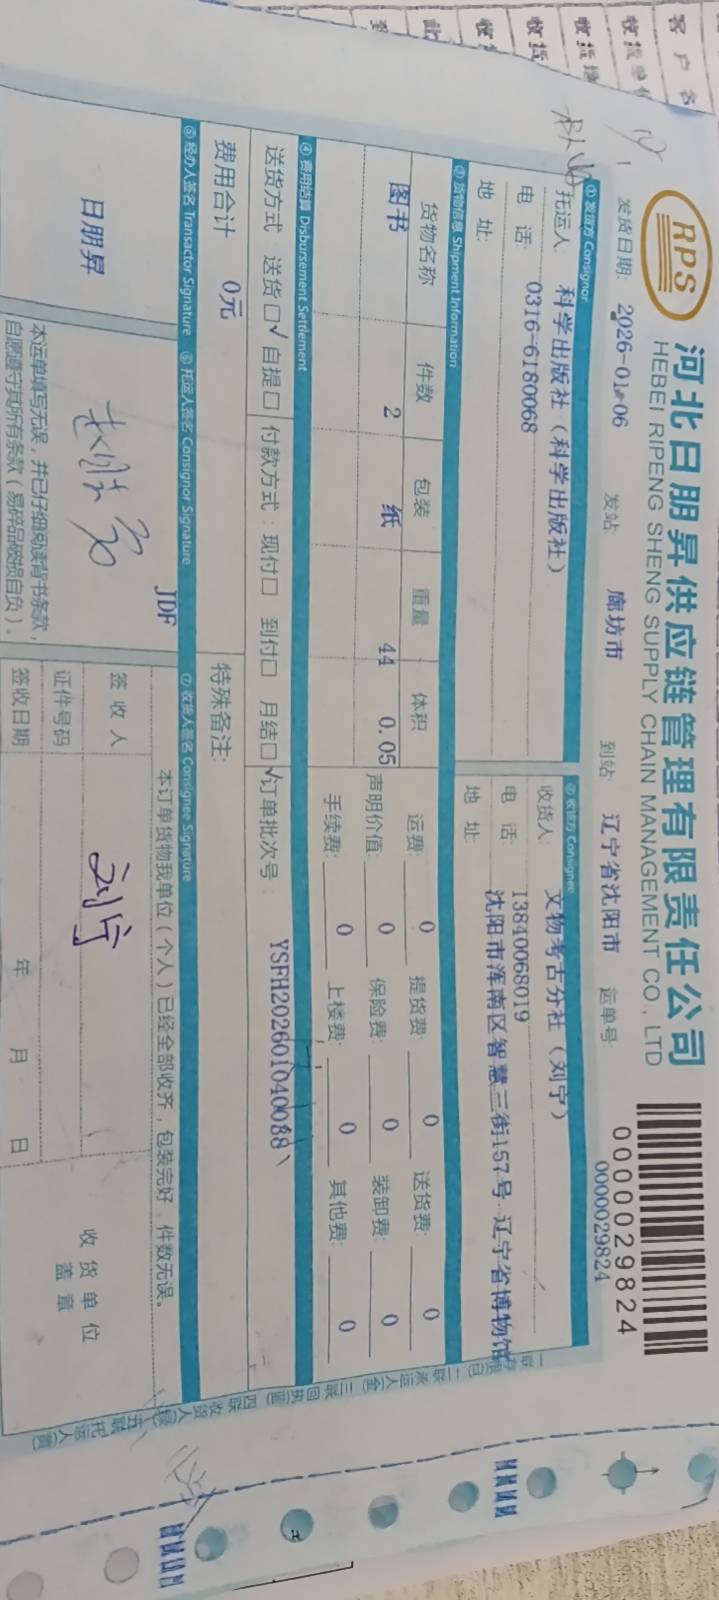 RPS
河北日朋昇供应链管理有限责任公司
HEBEI RIPENG SHENG SUPPLY CHAIN MANAGEMENT CO., LTD
0000029824
发货日期: 2026-01-06 发站: 廊坊市 到站: 辽宁省沈阳市 运单号: 0000029824
① 发货方 Consignor
托运人: 科学出版社（科学出版社）
电 话: 0316-6180068
地 址:
② 收货方 Consignee
收货人: 文物考古分社（刘宁）
电 话: 13840068019
地 址: 沈阳市浑南区智慧三街157号 辽宁省博物馆
③ 货物信息 Shipment Information
货物名称 件数 包装 重量 体积
图书 2 纸 44 0.05
运费: 0 提货费: 0 送货费: 0
声明价值: 0 保险费: 0 装卸费: 0
手续费: 0 上楼费: 0 其他费: 0
④ 费用结算 Disbursement Settlement
送货方式: 送货□√ 自提□ 付款方式: 现付□ 到付□ 月结□√ 订单批次号: YSFH202601040088
费用合计 0元 特殊备注:
⑤ 经办人签名 Transactor Signature ⑥ 托运人签名 Consignor Signature ⑦ 收货人签名 Consignee Signature
JDF
日朋昇
本运单填写无误，并已仔细阅读背书条款，
自愿遵守其所有条款（易碎品破损自负）。
本订单货物我单位（个人）已经全部收齐，包装完好，件数无误。
签收人 刘宁
证件号码
签收日期 年 月 日
收货单位
盖章